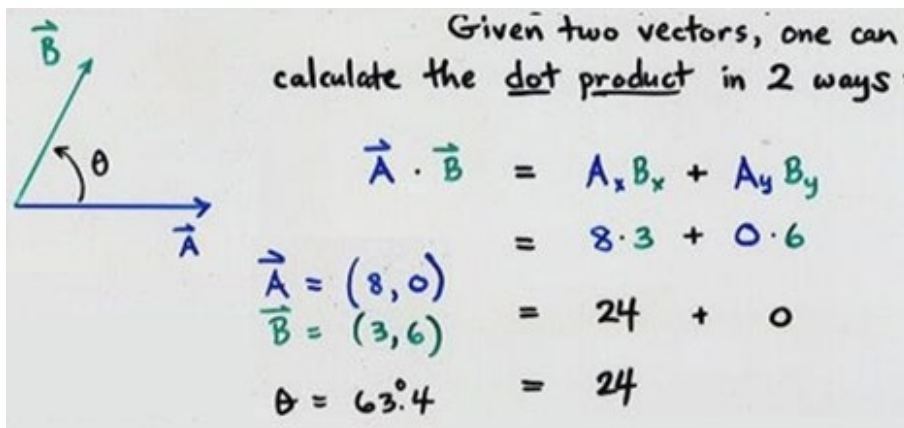 Given two vectors, one can
calculate the dot product in 2 ways
B⃗
θ
A⃗
A⃗ · B⃗ = AₓBₓ + A_y B_y
= 8·3 + 0·6
A⃗ = (8, 0)
= 24 + 0
B⃗ = (3, 6)
= 24
θ = 63°.4